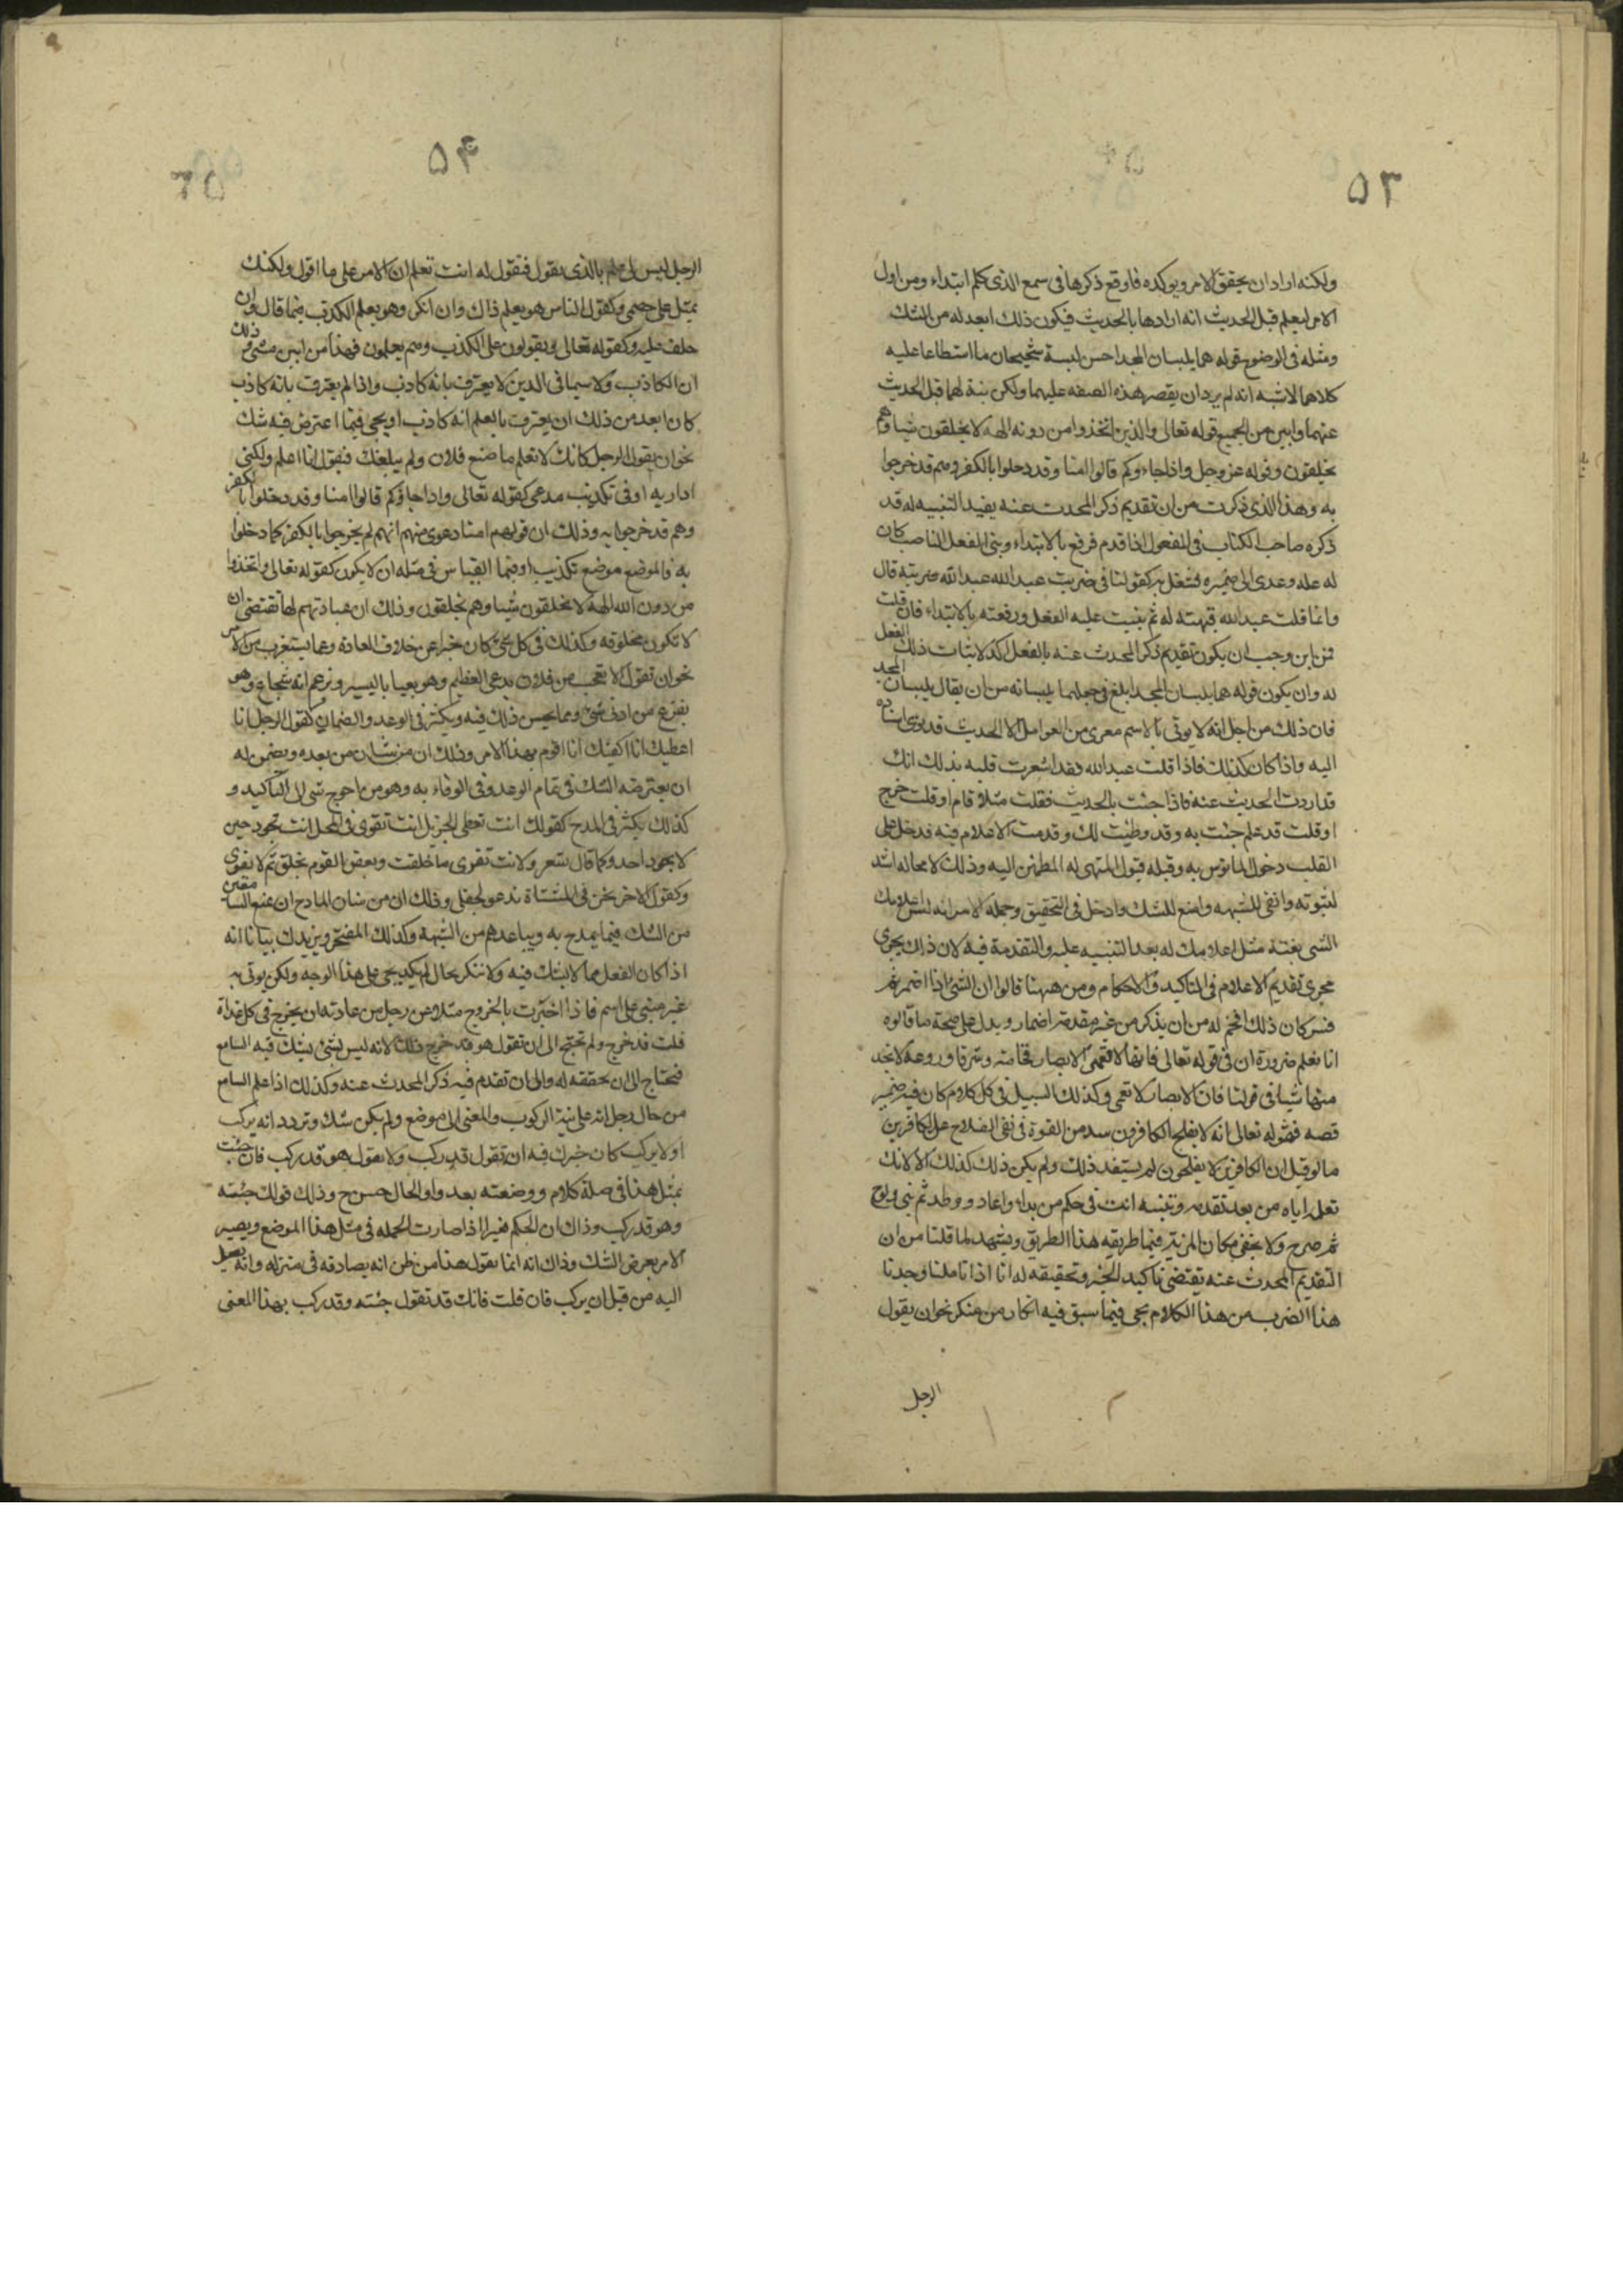 ۵۳
ولكنه اراد ان يحقق الامر ويوكده فاوقع ذكرها فى سمع الذى كلم ابتداء ومن اول
الامر ليعلم قبل الحديث انه ارادها بالحديث فيكون ذلك ابعد له من الشك
ومثله فى الوضوح قوله هما يلبسان المجد احسن لبسة شحيحان ما اسطاعا عليه
كلاهما لا شبه انه لم يرد ان يقصر هذه الصفه عليهما ولكن نبه لهما قبل الحديث
عنهما وابين من الجميع قوله تعالى والذين اتخذوا من دونه الهة لا يخلقون شيا وهم
يخلقون وقوله عز وجل واذا جاءوكم قالوا امنا وقد دخلوا بالكفر وهم قد خرجوا
به وهذا الذى ذكرت من ان تقديم ذكر المحدث عنه يفيد التنبيه له قد
ذكره صاحب الكتاب فى المفعول اذا قدم فرفع بالابتداء وبنى الفعل الناصب كان
له عله وعدى الى ضميره فشغل به كقولنا فى ضربت عبد الله عبد الله ضربته قال
وانما قلت عبد الله فنبهته له ثم بنيت عليه الفعل ورفعته بالابتداء فان قلت
فمن اين وجب ان يكون تقديم ذكر المحدث عنه بالفعل اكد لاثبات ذلك الفعل
له وان يكون قوله هما يلبسان المجد ابلغ فى جعلهما يلبسانه من ان يقال يلبسان المجد
فان ذلك من اجل انه لا يوتى بالاسم معرى من العوامل الا لحديث قد نوى اسناده
اليه واذا كان كذلك فاذا قلت عبد الله فقد اشعرت قلبه بذلك انك
قد اردت الحديث عنه فاذا جئت بالحديث فقلت مثلا قام او قلت خرج
او قلت قدم علم جئت به وقد وطئت لك وقدمت الاعلام فيه فدخل على
القلب دخول المانوس به وقبله قبول المتهى له المطمئن اليه وذلك لا محاله اشد
لثبوته وانفى للشبهه وامنع للشك وادخل فى التحقيق وجمله الامر انه ليس اعلامك
الشى بغتة مثل اعلامك له بعد التنبيه عليه والتقدمة فيه لان ذلك يجرى
مجرى تقديم الاعلام فى التاكيد والاحكام ومن ههنا قالوا ان الشئ اذا اضمر ثم
فسر كان ذلك افخم له من ان يذكر من غير مقدمة اضمار ويدل على صحة ما قالوه
انا نعلم ضرورة ان فى قوله تعالى فانها لا تعمى الابصار فخامة وشرفا وروعة لا نجد
منها شيا فى قولنا فان الابصار لا تعمى وكذلك السبيل فى كل كلام كان فيه ضمير
قصه فقوله تعالى انه لا يفلح الكافرون سد من القوة فى نفى الفلاح عن الكافرين
ما لو قيل ان الكافرين لا يفلحون لم يستفد ذلك ولم يكن ذلك كذلك الا لانك
تعلمه اياه من بعد تقدمه وتنبيه انت فى حكم من بداء واعاد ووطد ثم بنى ولوح
ثم صرح ولا يخفى مكان المزية فيما طريقه هذا الطريق ويشهد لما قلنا من ان
التقديم المحدث عنه يقتضى تاكيد الخبر وتحقيقه له انا اذا تاملنا وجدنا
هذا الضرب من هذا الكلام يجى فيما سبق فيه انكار من منكر نحو ان يقول
الرجل
۵۴
الرجل ليس لى علم بالذى يقول فتقول له انت تعلم ان الامر على ما اقول ولكنك
تميل على خصمى وكقول الناس هو يعلم ذاك وان انكر وهو يعلم الكذب فيما قال وان
حلف عليه وكقوله تعالى ويقولون على الكذب وهم يعلمون فهذا من ابين شئ وذلك
ان الكاذب ولا سيما فى الدين لا يعترف بانه كاذب واذا لم يعترف بانه كاذب
كان ابعد من ذلك ان يعترف بالعلم انه كاذب او يجى فيما اعترض فيه شك
نحو ان يقول الرجل كانك لا تعلم ما صنع فلان ولم يبلغك فيقول انا اعلم ولكنى
اداريه او فى تكذيب مدعى كقوله تعالى واذا جاؤكم قالوا امنا وقد دخلوا بالكفر
وهم قد خرجوا به وذلك ان قولهم امنا دعوى منهم انهم لم يخرجوا بالكفر كما دخلوا
به فالموضع موضع تكذيب او فيما القياس فى مثله ان لا يكون كقوله تعالى واتخذوا
من دون الله الهة لا يخلقون شيا وهم يخلقون وذلك ان عبادتهم لها تقتضى ان
لا تكون مخلوقه وكذلك فى كل شئ كان خبرا عن خلاف العادة وعما يستغرب من الامر
نحو ان تقول الا تعجب من فلان يدعى العظيم وهو يعيا باليسير ويزعم انه شجاع وهو
يفزع من ادنى شئ ومما يحسن ذلك فيه ويكثر فى الوعد والضمان كقول الرجل انا
اعطيك انا اكفيك انا اقوم بهذا الامر وذلك ان من شان من يعده ويضمن له
ان يعترضه الشك فى تمام الوعد وفى الوفاء به وهو من احوج شى الى التاكيد و
كذلك يكثر فى المدح كقولك انت تعطى الجزيل انت تقوى فى المحل انت تجود حين
لا يجود احد وكما قال شعر ولانت تفرى ما خلقت وبعض القوم يخلق ثم لا يفرى
وكقول الاخر نحن فى المشتاة ندعو الجفلى وذلك ان من شان المادح ان يمنع السامعين
من الشك فيما يمدح به ويباعدهم من الشبهة وكذلك المفتخر ويزيدك بيانا انه
اذا كان الفعل مما لا يشك فيه ولا ننكر بحال لم يكد يجى على هذا الوجه ولكن يوتى به
غير مبنى على اسم فاذا اخبرت بالخروج مثلا عن رجل من عادته ان يخرج فى كل غداة
قلت قد خرج ولم تحتج الى ان تقول هو قد خرج ذلك لانه ليس بشئ يشك فيه السامع
فتحتاج الى ان تحققه له والى ان تقدم فيه ذكر المحدث عنه وكذلك اذا علم السامع
من حال رجل انه على نية الركوب والمعنى الى موضع ولم يكن شك وتردد انه يركب
او لا يركب كان خبرك فيه ان تقول قد ركب ولا تقول هو قد ركب فان جئت
بمثل هذا فى صلة كلام ووضعته بعد واو الحال حسن ح وذلك قولك جئته
وهو قد ركب وذاك ان الحكم يتغير اذا صارت الجمله فى مثل هذا الموضع ويصير
الامر بعرض الشك وذاك انه انما يقول هذا من ظن انه يصادقه فى منزله وانه يصل
اليه من قبل ان يركب فان قلت فانك قد تقول جئته وقد ركب بهذا المعنى